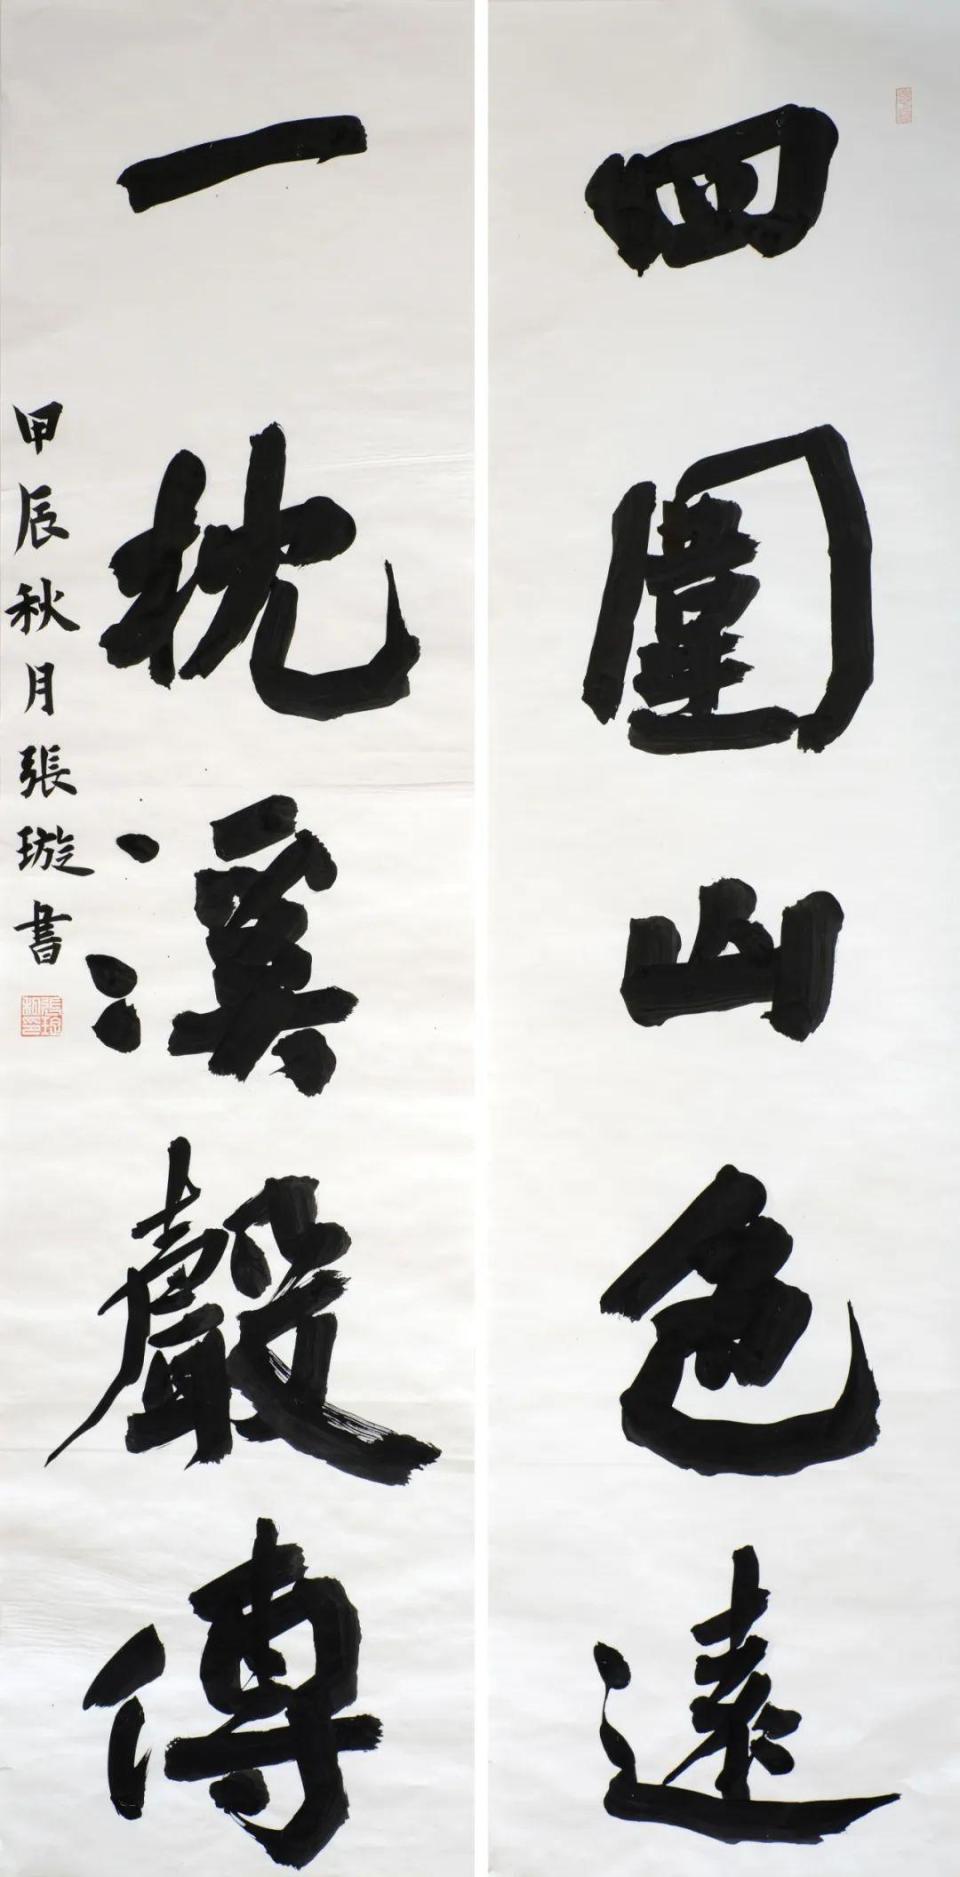 四圍山色遠
一枕溪聲傳
甲辰秋月張璇書